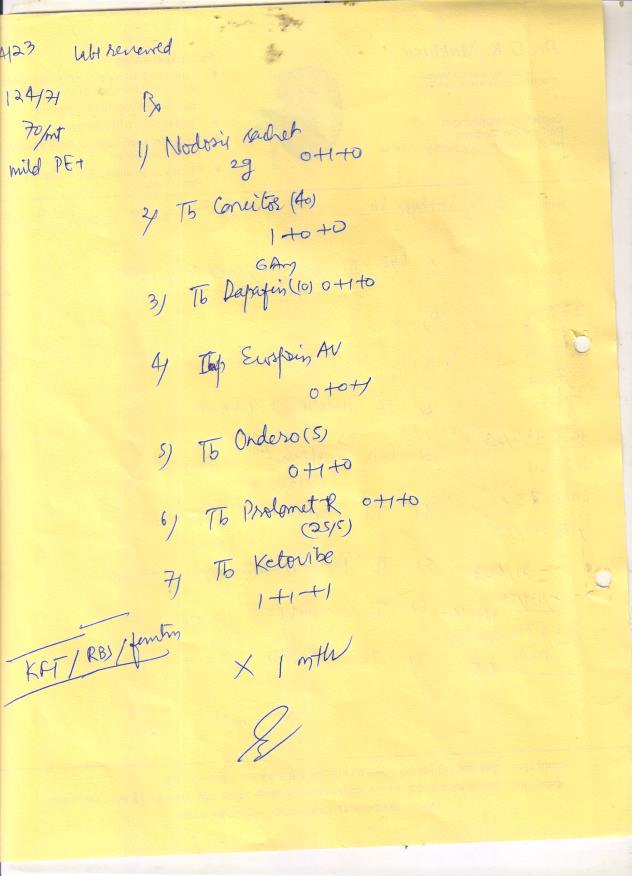 4/23 labs reviewed
124/71
70/mt
mild PE+
Rx
1) Nodosis sachet
2g 0+1+0
2) Tb (40)
1+0+0
6 Am
3) Tb Dapafin (10) 0+1+0
4) AV
0+0+1
5) Tb Ondero (5)
0+1+0
6) Tb Prolomet R 0+1+0
(25/5)
7) Tb Ketovibe
1+1+1
KFT/RBS/
X 1 mth